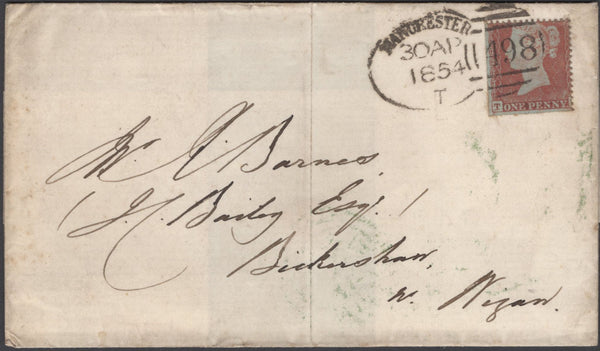 MANCHESTER
30AP
1854
T
498
T ONE PENNY
Mr. A. Barnes,
(J. C. Bailey Esqr.)
Bickershaw,
nr. Wigan.